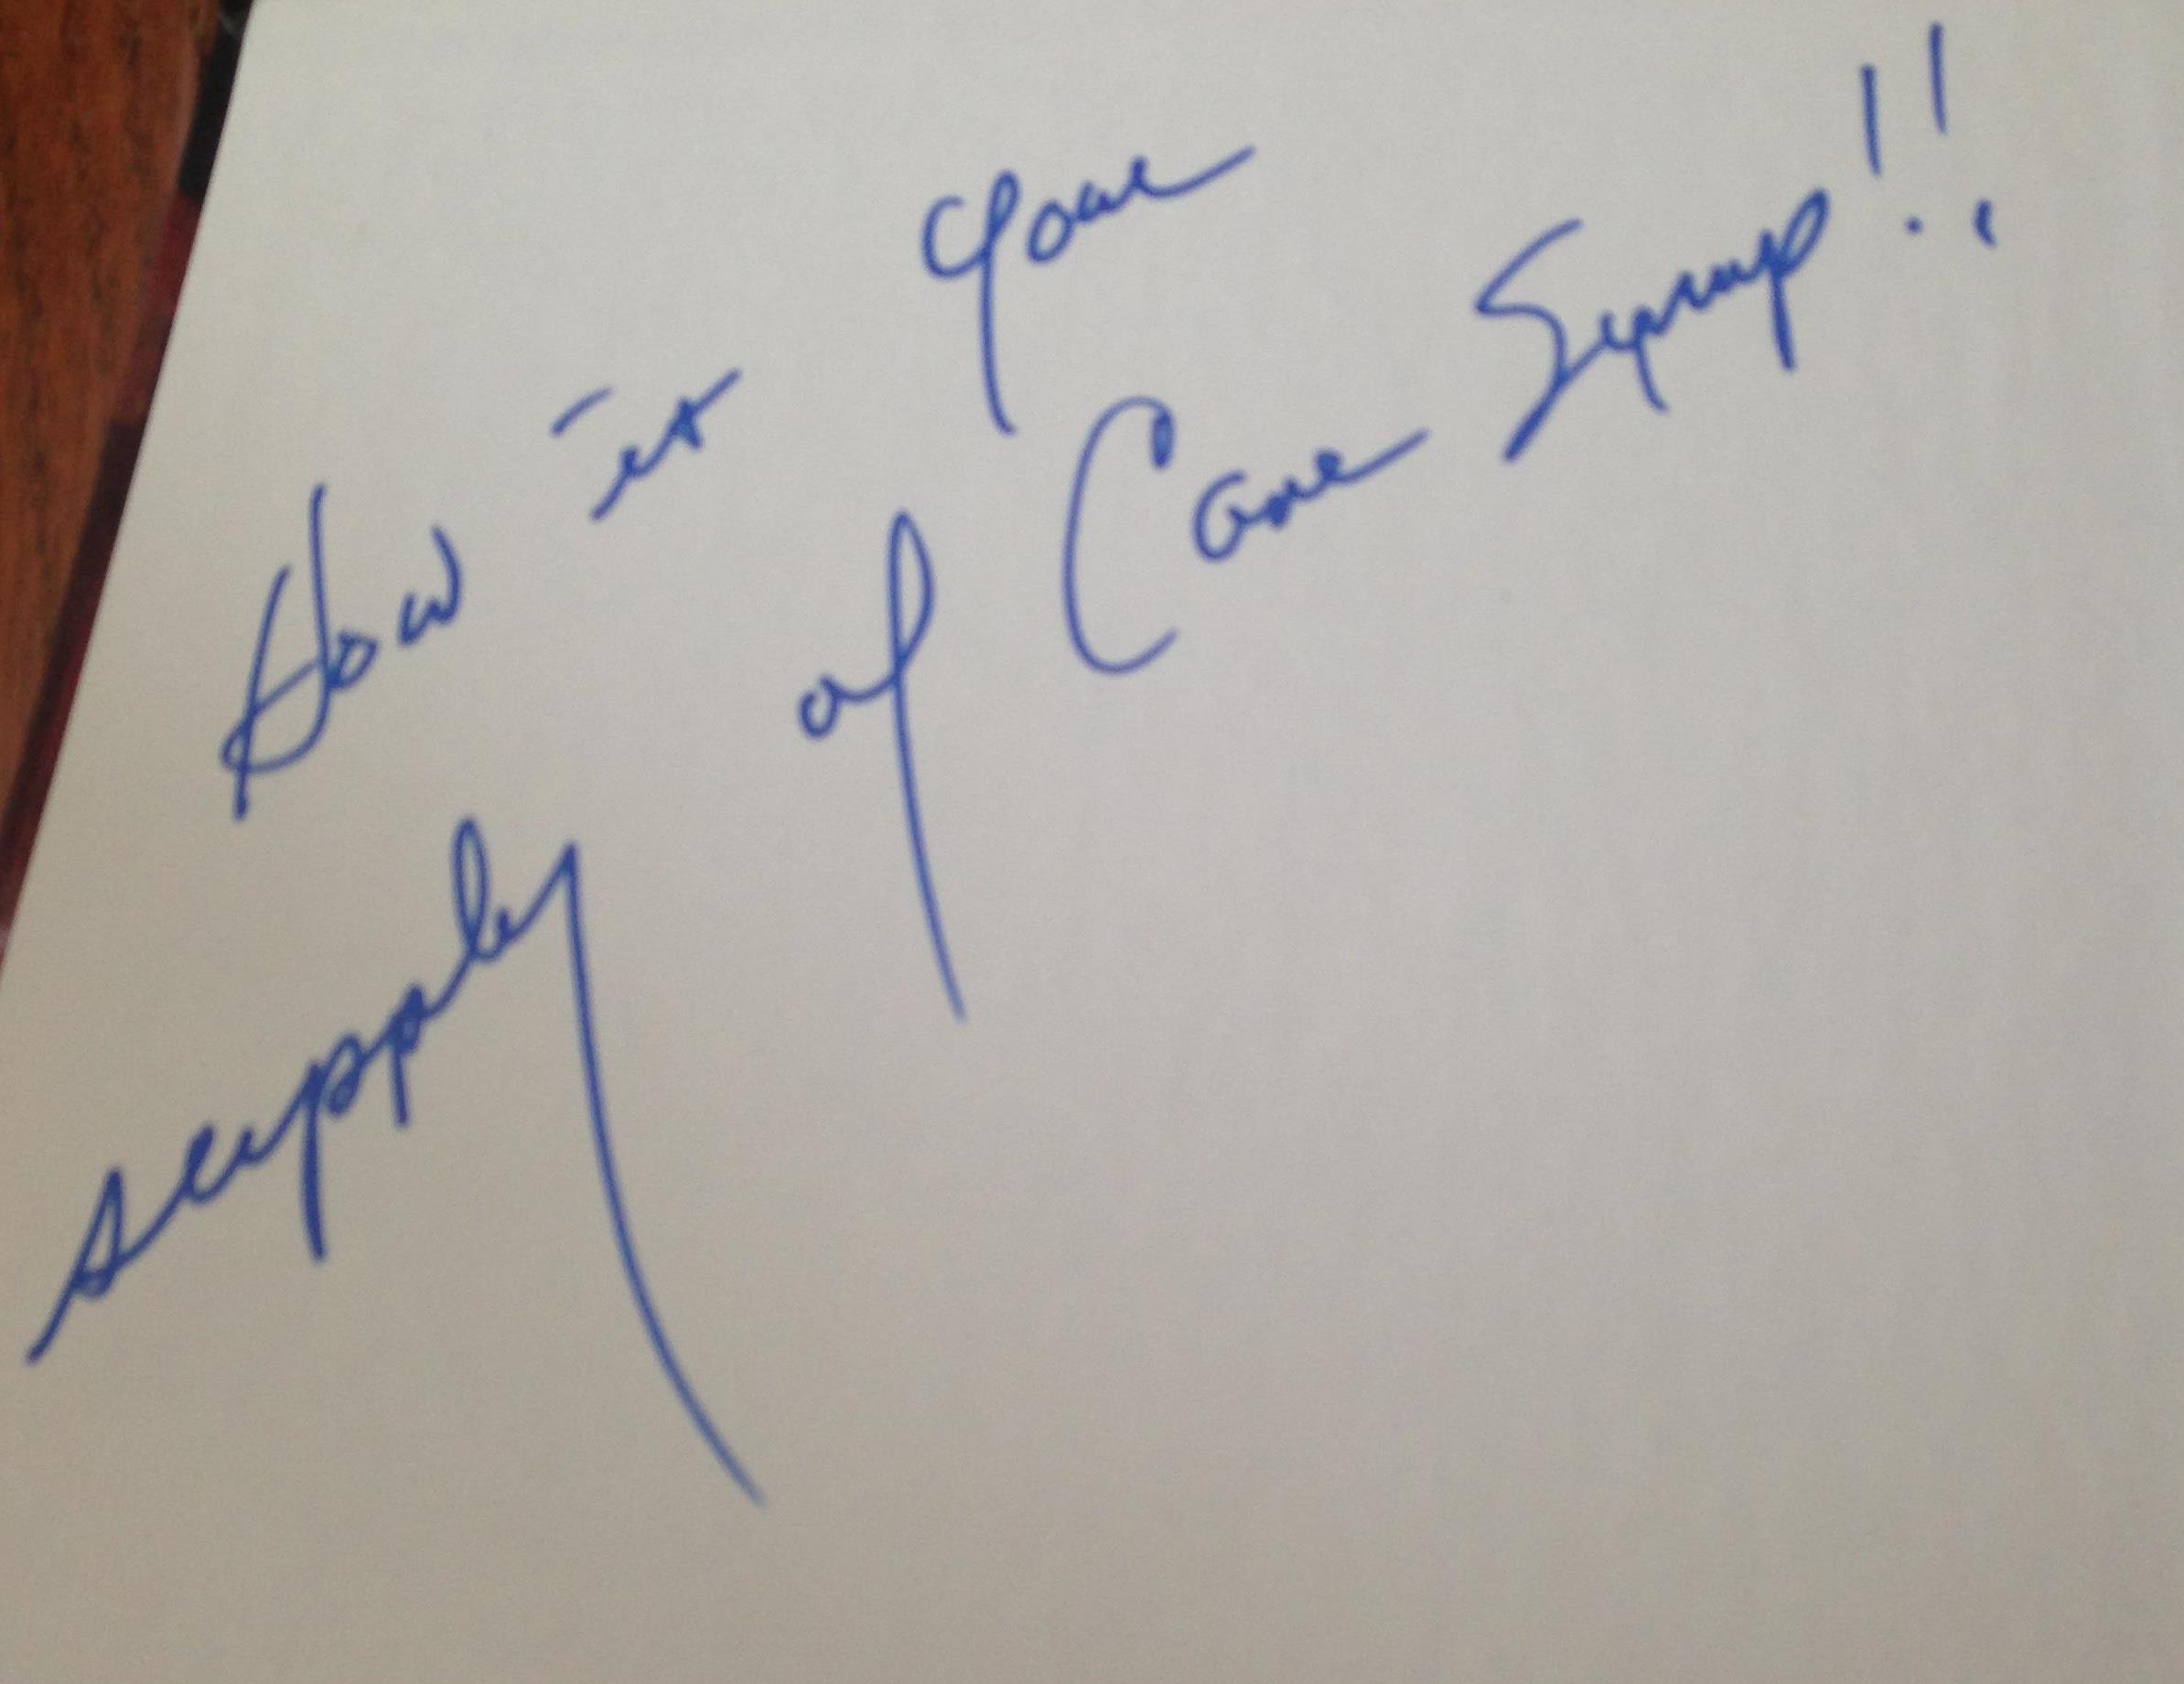 How is your
supply of Cane Syrup!!